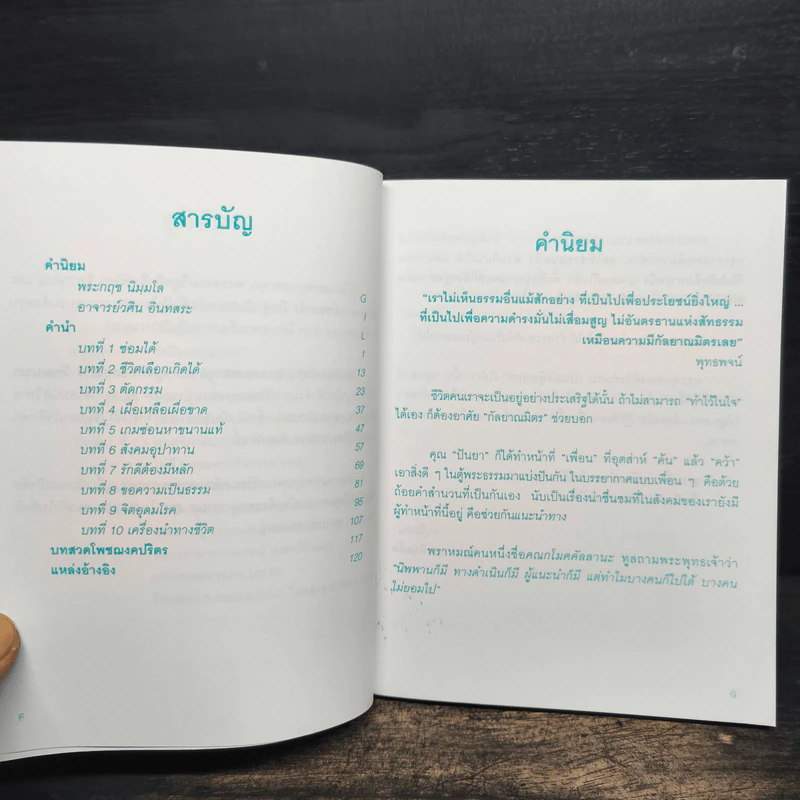 สารบัญ
คำนิยม
พระกฤช นิมฺมโล G
อาจารย์วศิน อินทสระ I
คำนำ L
บทที่ 1 ซ่อมได้ 1
บทที่ 2 ชีวิตเลือกเกิดได้ 13
บทที่ 3 ตัดกรรม 23
บทที่ 4 เผื่อเหลือเผื่อขาด 37
บทที่ 5 เกมซ่อนหาขนานแท้ 47
บทที่ 6 สังคมอุปาทาน 57
บทที่ 7 รักดีต้องมีหลัก 69
บทที่ 8 ขอความเป็นธรรม 81
บทที่ 9 จิตอุดมโรค 95
บทที่ 10 เครื่องนำทางชีวิต 107
บทสวดโพชฌงคปริตร 117
แหล่งอ้างอิง 120
F
คำนิยม
"เราไม่เห็นธรรมอื่นแม้สักอย่าง ที่เป็นไปเพื่อประโยชน์ยิ่งใหญ่ ...
ที่เป็นไปเพื่อความดำรงมั่นไม่เสื่อมสูญ ไม่อันตรธานแห่งสัทธรรม
เหมือนความมีกัลยาณมิตรเลย"
พุทธพจน์
ชีวิตคนเราจะเป็นอยู่อย่างประเสริฐได้นั้น ถ้าไม่สามารถ "ทำไว้ในใจ"
ได้เอง ก็ต้องอาศัย "กัลยาณมิตร" ช่วยบอก
คุณ "ปันยา" ก็ได้ทำหน้าที่ "เพื่อน" ที่อุตส่าห์ "ค้น" แล้ว "คว้า"
เอาสิ่งดี ๆ ในตู้พระธรรมมาแบ่งปันกัน ในบรรยากาศแบบเพื่อน ๆ คือด้วย
ถ้อยคำสำนวนที่เป็นกันเอง นับเป็นเรื่องน่าชื่นชมที่ในสังคมของเรายังมี
ผู้ทำหน้าที่นี้อยู่ คือช่วยกันแนะนำทาง
พราหมณ์คนหนึ่งชื่อคณกโมคคัลลานะ ทูลถามพระพุทธเจ้าว่า
"นิพพานก็มี ทางดำเนินก็มี ผู้แนะนำก็มี แต่ทำไมบางคนก็ไปได้ บางคน
ไม่ยอมไป"
G